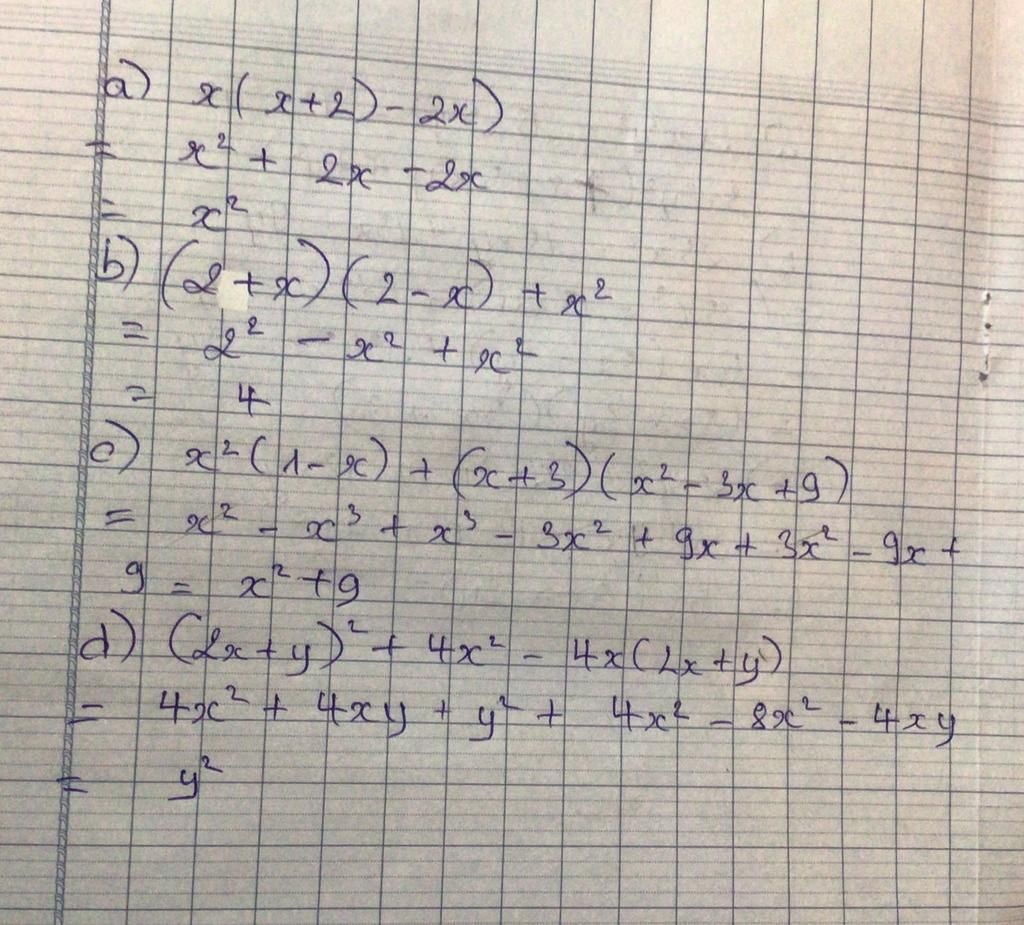 a) x(x+2) - 2x)
= x² + 2x - 2x
= x²
b) (2+x)(2-x) + x²
= 2² - x² + x²
= 4
c) x²(1-x) + (x+3)(x² - 3x + 9)
= x² - x³ + x³ - 3x² + 9x + 3x² - 9x +
9 = x² + 9
d) (2x+y)² + 4x² - 4x(2x+y)
= 4x² + 4xy + y² + 4x² - 8x² - 4xy
= y²